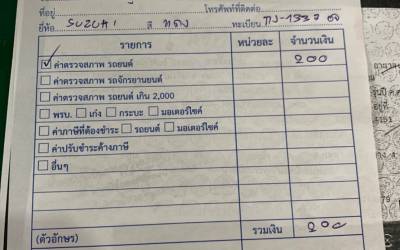 ที่อยู่ โทรศัพท์ที่ติดต่อ
ยี่ห้อ SUZUKI สี ทะเบียน
รายการ หน่วยละ จำนวนเงิน
ค่าตรวจสภาพ รถยนต์ 200
ค่าตรวจสภาพ รถจักรยานยนต์
ค่าตรวจสภาพ รถยนต์ เกิน 2,000
พรบ. เก๋ง กระบะ มอเตอร์ไซค์
ค่าภาษีที่ต้องชำระ รถยนต์ มอเตอร์ไซค์
ค่าปรับชำระค้างภาษี
อื่นๆ
(ตัวอักษร) รวมเงิน 200